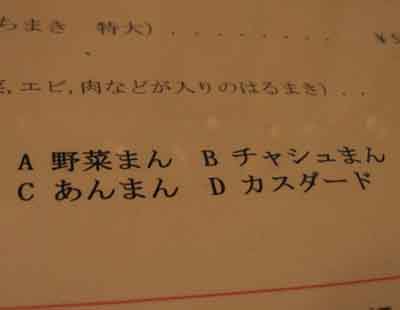 ちまき 特大) . . . . . . . .
,エビ,肉などが入りのはるまき) . .
A 野菜まん B チャシュまん
C あんまん D カスダード